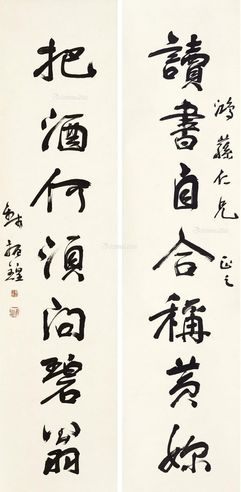 讀書自合稱黃嬭
鴻藻仁兄正之
把酒何須問碧翁